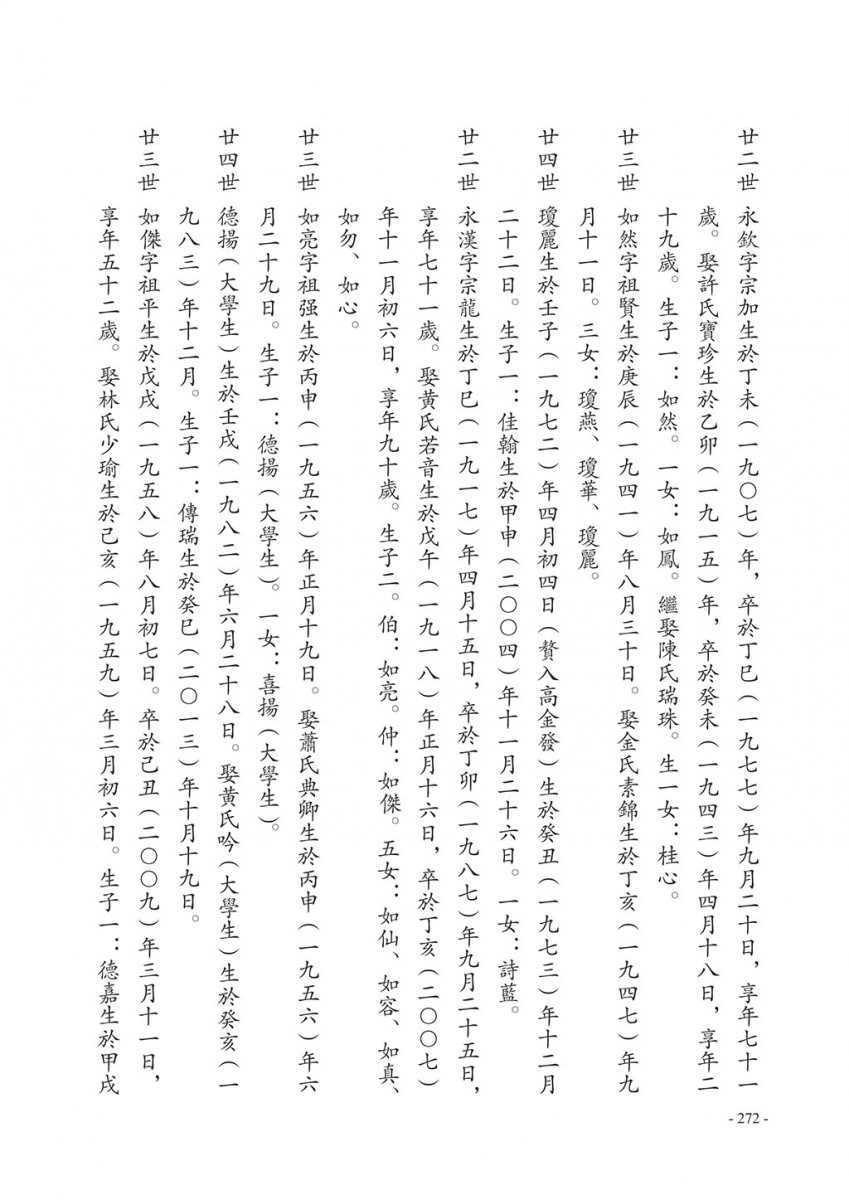 廿二世 永欽字宗加生於丁未（一九〇七）年，卒於丁巳（一九七七）年九月二十日，享年七十一
歲。娶許氏寶珍生於乙卯（一九一五）年，卒於癸未（一九四三）年四月十八日，享年二
十九歲。生子一：如然。一女：如鳳。繼娶陳氏瑞珠。生一女：桂心。
廿三世 如然字祖賢生於庚辰（一九四一）年八月三十日。娶金氏素錦生於丁亥（一九四七）年九
月十一日。三女：瓊燕、瓊華、瓊麗。
廿四世 瓊麗生於壬子（一九七二）年四月初四日（贅入高金發）生於癸丑（一九七三）年十二月
二十二日。生子一：佳翰生於甲申（二〇〇四）年十一月二十六日。一女：詩藍。
廿二世 永漢字宗龍生於丁巳（一九一七）年四月十五日，卒於丁卯（一九八七）年九月二十五日，
享年七十一歲。娶黃氏若音生於戊午（一九一八）年正月十六日，卒於丁亥（二〇〇七）
年十一月初六日，享年九十歲。生子二。伯：如亮。仲：如傑。五女：如仙、如容、如真、
如勿、如心。
廿三世 如亮字祖强生於丙申（一九五六）年正月十九日。娶蕭氏典卿生於丙申（一九五六）年六
月二十九日。生子一：德揚（大學生）。一女：喜揚（大學生）。
廿四世 德揚（大學生）生於壬戌（一九八二）年六月二十八日。娶黃氏吟（大學生）生於癸亥（一
九八三）年十二月。生子一：傳瑞生於癸巳（二〇一三）年十月十九日。
廿三世 如傑字祖平生於戊戌（一九五八）年八月初七日。卒於己丑（二〇〇九）年三月十一日，
享年五十二歲。娶林氏少瑜生於己亥（一九五九）年三月初六日。生子一：德嘉生於甲戌
- 272 -